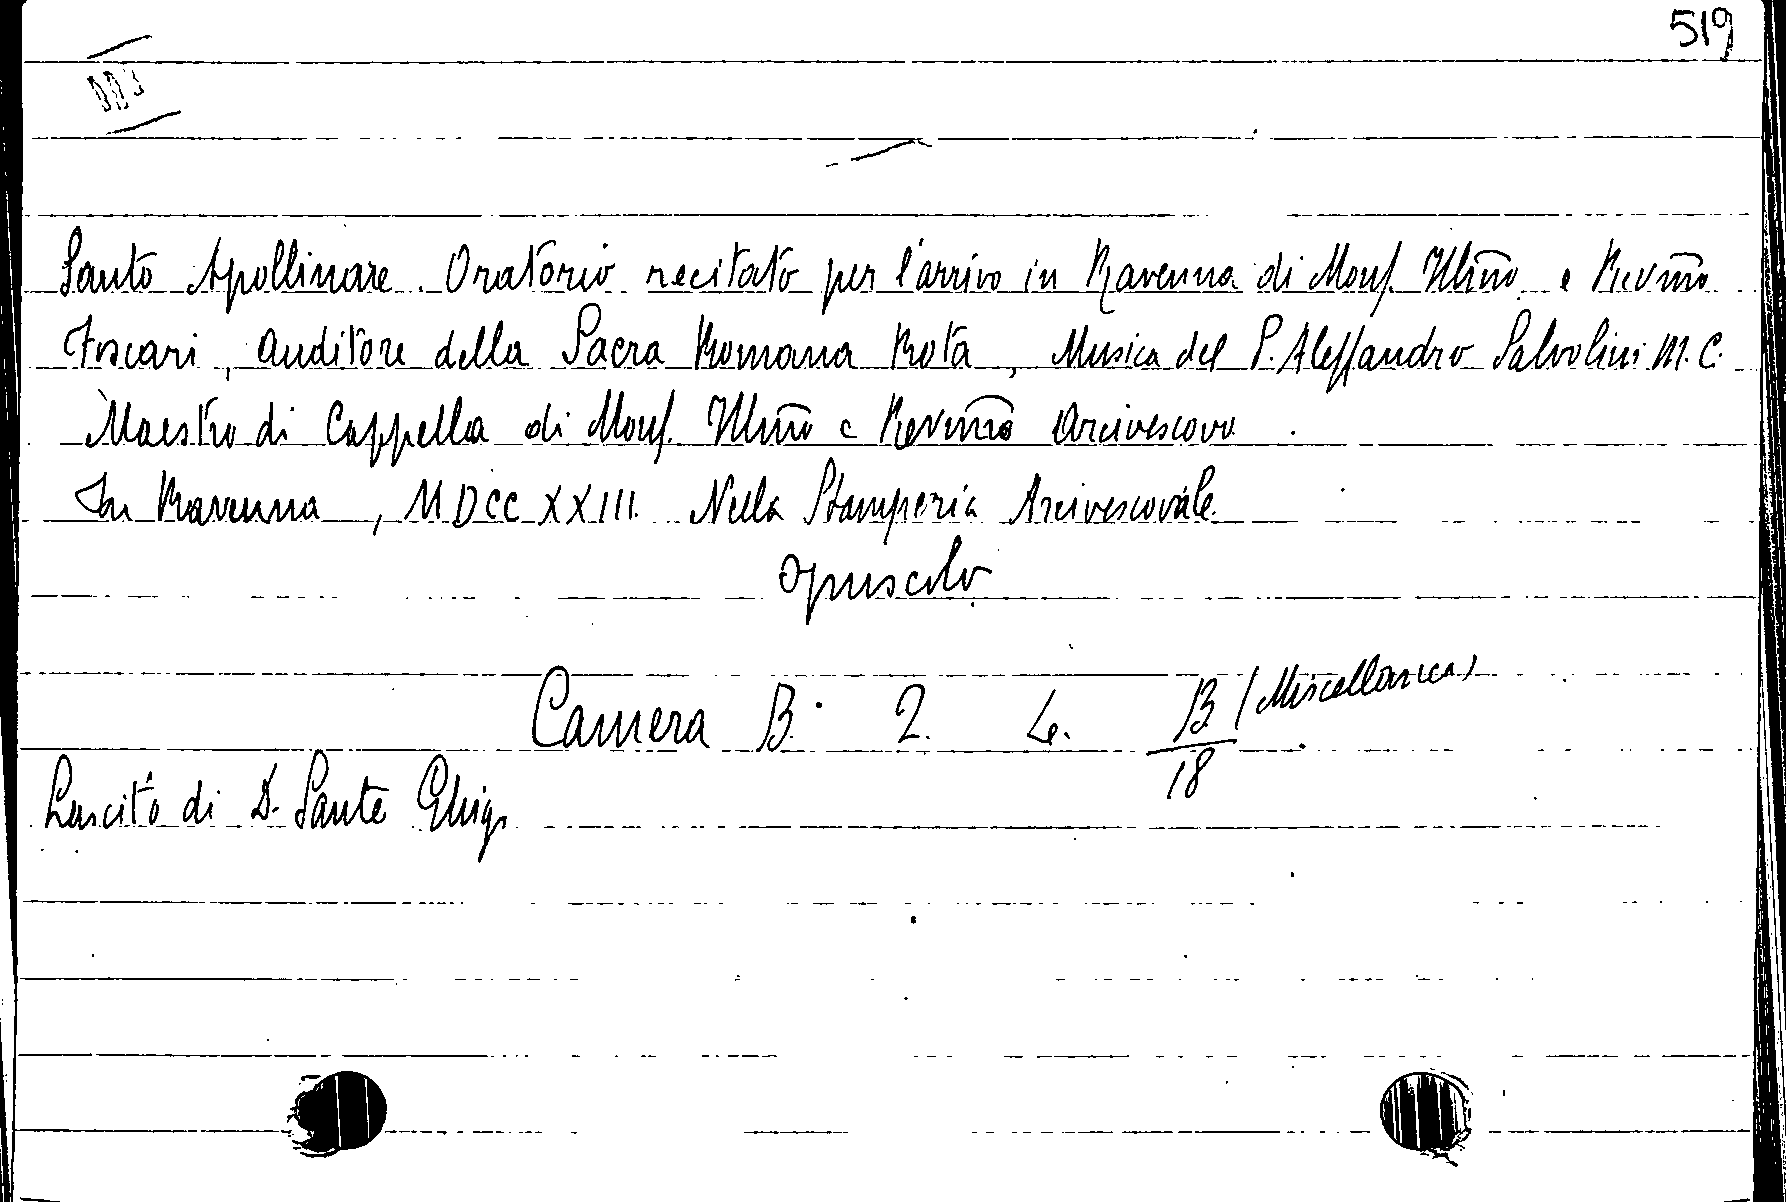 519
Santo Apollinare. Oratorio recitato per l'arrivo in Ravenna di Mons. Illmo e Revmo
Foscari, Auditore della Sacra Romana Rota, Musica del P. Alessandro Salvolini M.C.
Maestro di Cappella di Mons. Illmo e Revmo Arcivescovo
In Ravenna, MDCCXXIII. Nella Stamperia Arcivescovale.
Opuscolo
Camera B. 2. 4. B/18 (Miscellanea)
Lascito di D. Sante Ghigi